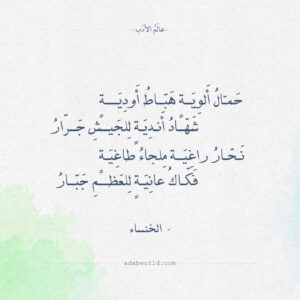 عالَمُ الأدَب -
حَمّالُ أَلوِيَةٍ هَبّاطُ أَودِيَةٍ
شَهّادُ أَندِيَةٍ لِلجَيشِ جَرّارُ
نَحّارُ راغِيَةٍ مِلجاءُ طاغِيَةٍ
فَكّاكُ عانِيَةٍ لِلعَظمِ جَبّارُ
- الخنساء
adabworld.com